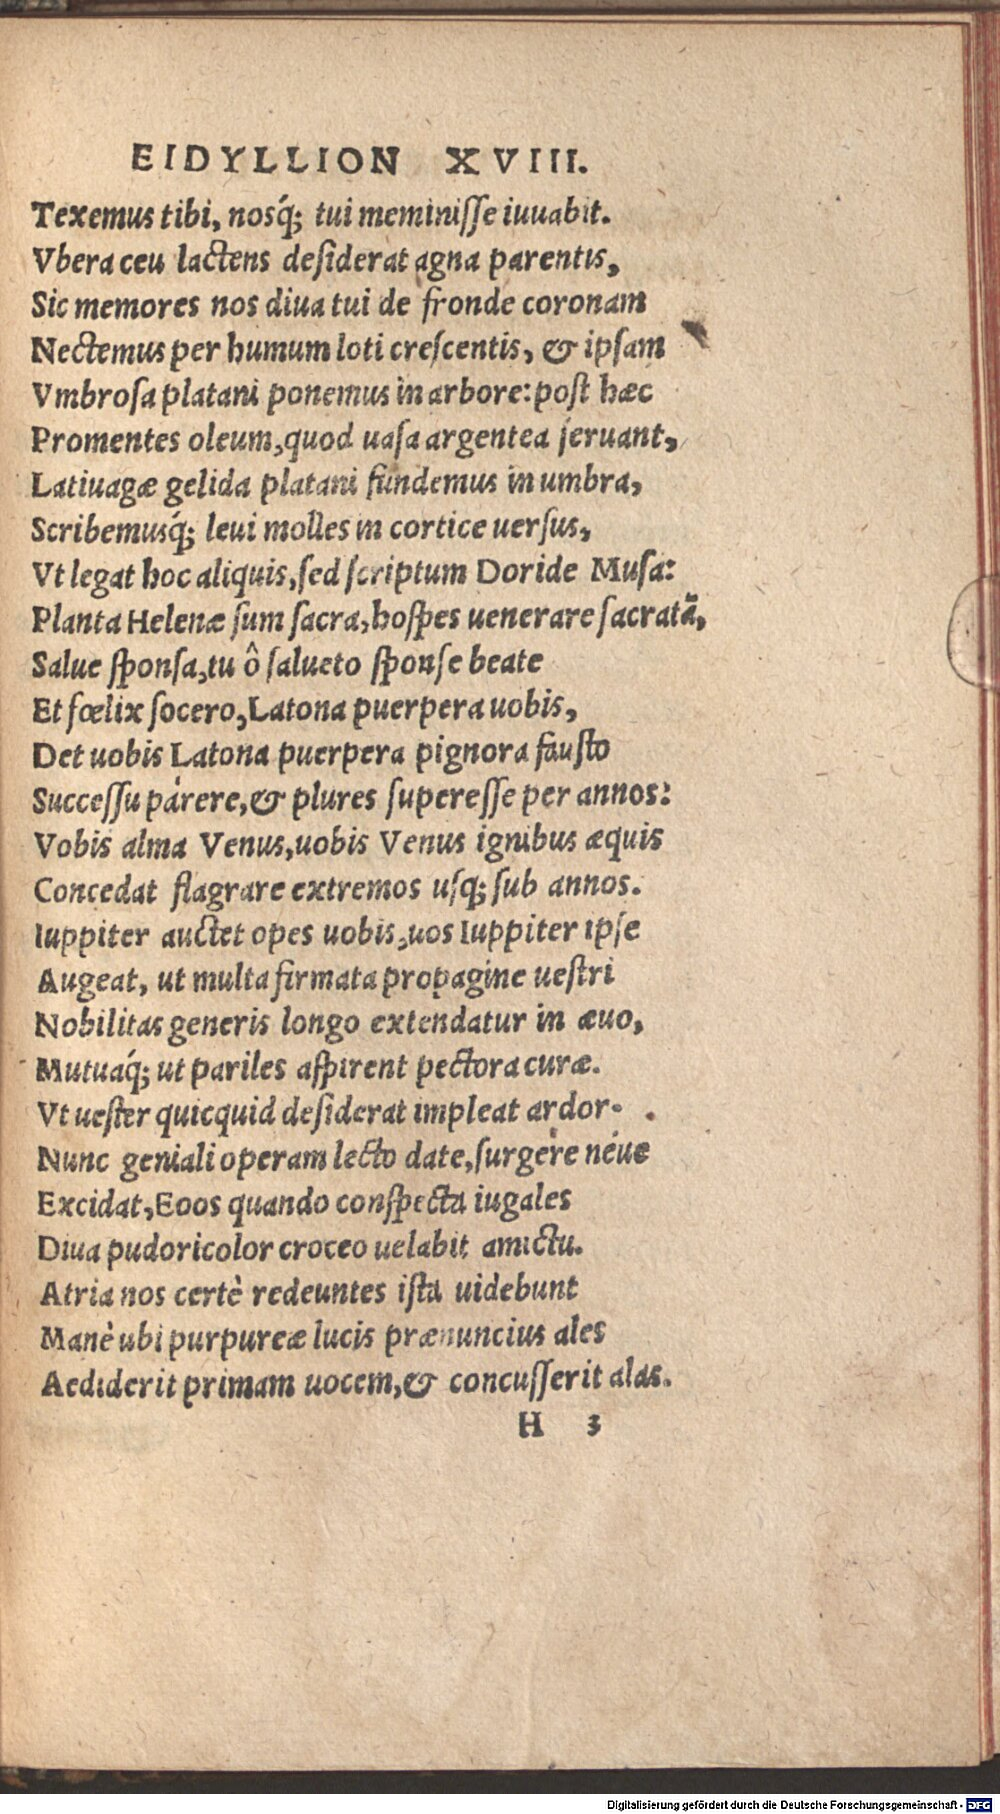 EIDYLLION XVIII.
Texemus tibi, nosq́; tui meminiſſe iuuabit.
Vbera ceu lactens deſiderat agna parentis,
Sic memores nos diua tui de fronde coronam
Nectemus per humum loti creſcentis, & ipſam
Vmbroſa platani ponemus in arbore: poſt hæc
Promentes oleum, quod uaſa argentea ſeruant,
Latiuagæ gelida platani fundemus in umbra,
Scribemusq́; leui molles in cortice uerſus,
Vt legat hoc aliquis, ſed ſcriptum Doride Muſa:
Planta Helenæ ſum ſacra, hoſpes uenerare ſacratā,
Salue ſponſa, tu ô ſalueto ſponſe beate
Et fœlix ſocero, Latona puerpera uobis,
Det uobis Latona puerpera pignora fauſto
Succeſſu pàrere, & plures ſupereſſe per annos:
Vobis alma Venus, uobis Venus ignibus æquis
Concedat flagrare extremos uſq; ſub annos.
Iuppiter auctet opes uobis, uos Iuppiter ipſe
Augeat, ut multa firmata propagine ueſtri
Nobilitas generis longo extendatur in æuo,
Mutuaq́; ut pariles aſpirent pectora curæ.
Vt ueſter quicquid deſiderat impleat ardor.
Nunc geniali operam lecto date, ſurgere néue
Excidat, Eoos quando conſpecta iugales
Diua pudoricolor croceo uelabit amictu.
Atria nos certè redeuntes iſta uidebunt
Manè ubi purpureæ lucis prænuncius ales
Aediderit primam uocem, & concuſſerit alas.
H 3
Digitalisierung gefördert durch die Deutsche Forschungsgemeinschaft - DFG